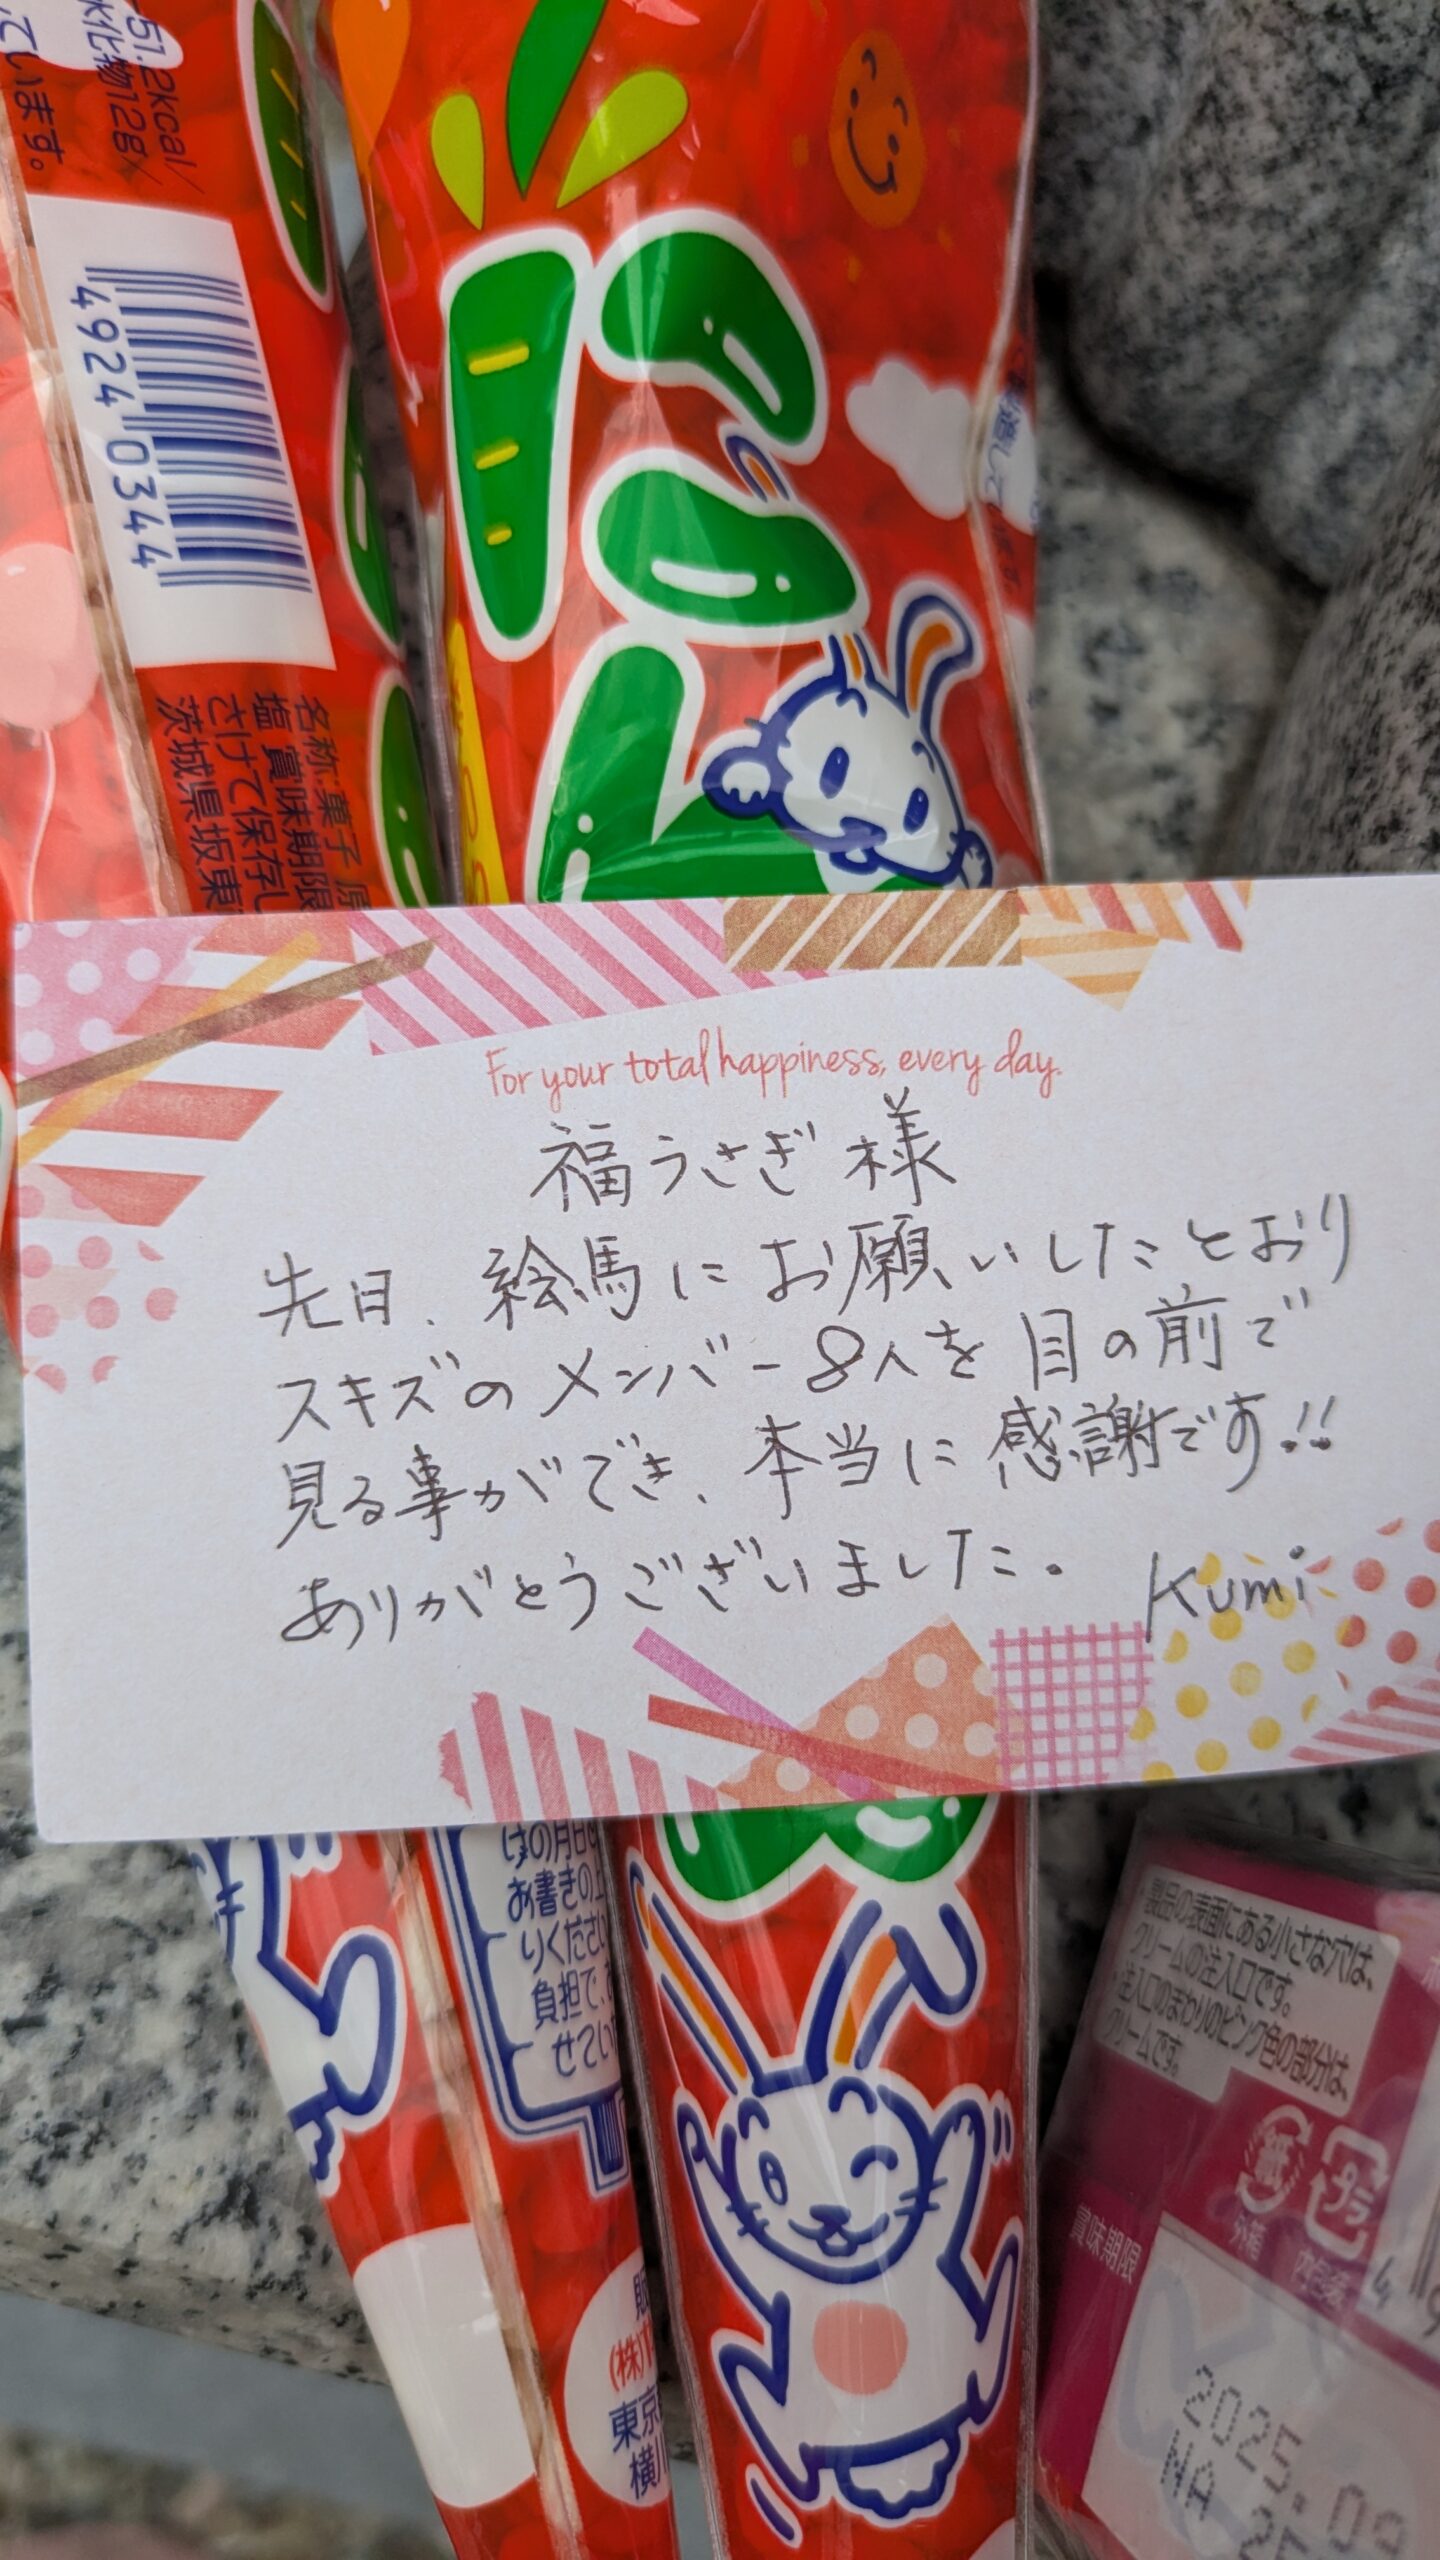 51.2kcal/
水化物12g/
ています。
4924 0344
名称:菓子
塩 賞味期限
さけて保存し
茨城県坂東
にん
For your total happiness, every day.
福うさぎ様
先日、絵馬にお願いしたとおり
スキズのメンバー8人を目の前で
見る事ができ、本当に感謝です!!
ありがとうございました。 Kumi
げの月日
お書きの上
りくださ
負担で、
せてい
販
(株)
東京
横川
製品の表面にある小さな穴は、
クリームの注入口です。
注入口のまわりのピンク色の部分は、
クリームです。
紙
プラ
外箱
内包装
賞味期限
2025.09
NA